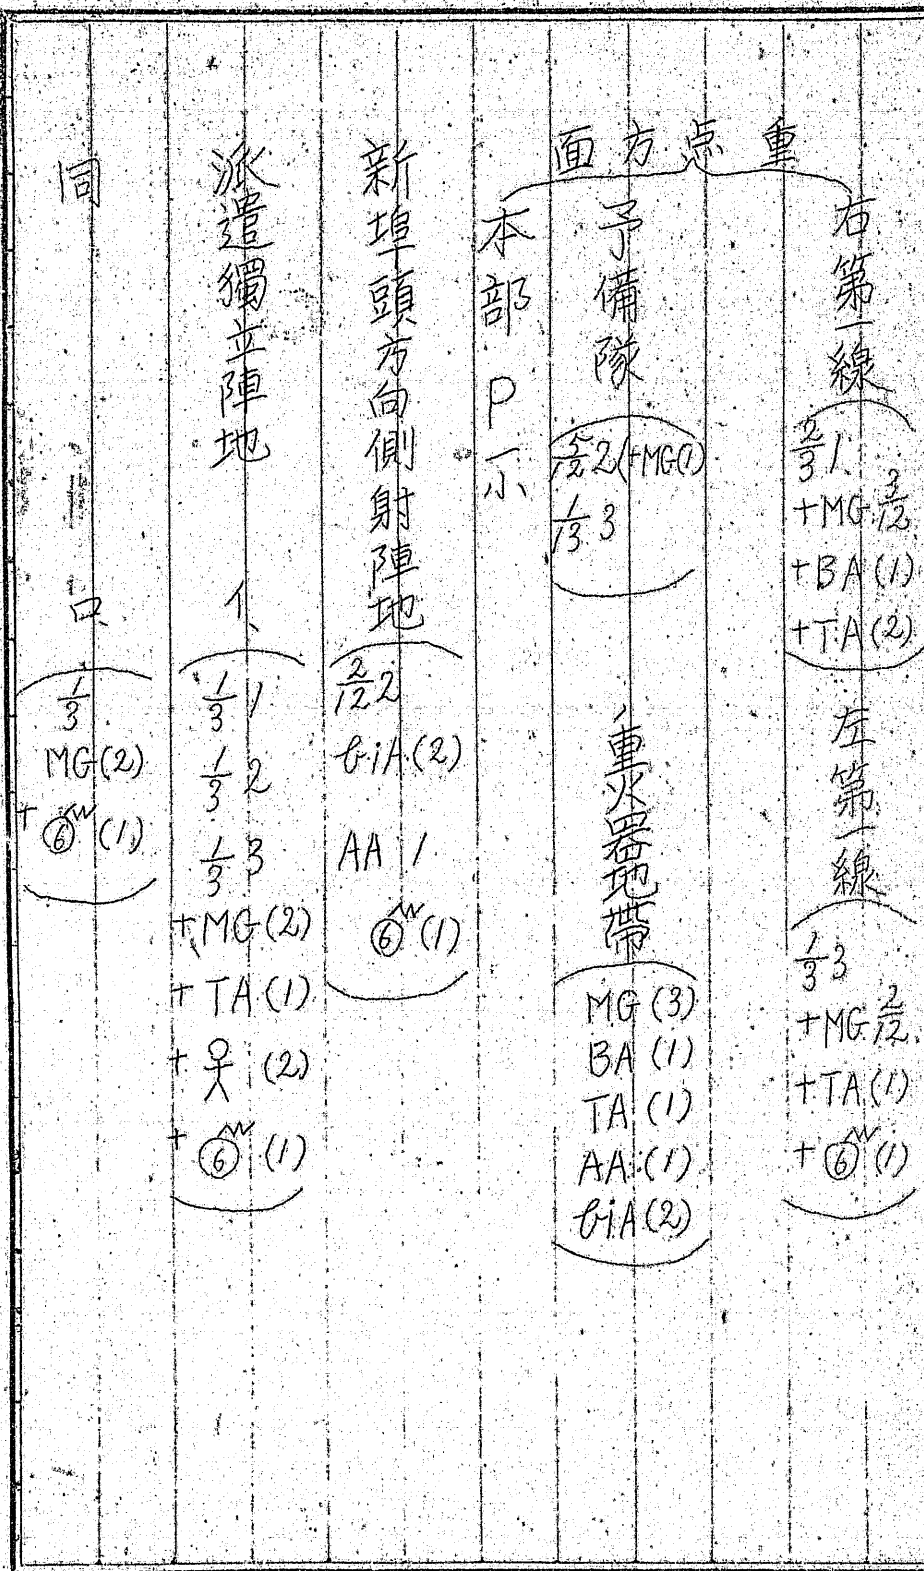 重点方面
右第一線
2/3 1
+MG 3/12
+BA(1)
+TA(2)
左第一線
1/3 3
+MG 2/12
+TA(1)
+⑥(1)
予備隊
2(+MG(1)
1/3 3
重火器地帶
MG(3)
BA(1)
TA(1)
AA(1)
biA(2)
本部 P 一小
新埠頭方向側射陣地
2/12 2
biA(2)
AA 1
⑥(1)
派遣獨立陣地 イ、
1/3 1
1/3 2
1/3 3
+MG(2)
+TA(1)
+ (2)
+⑥(1)
同 ロ、
1/3
MG(2)
+⑥(1)